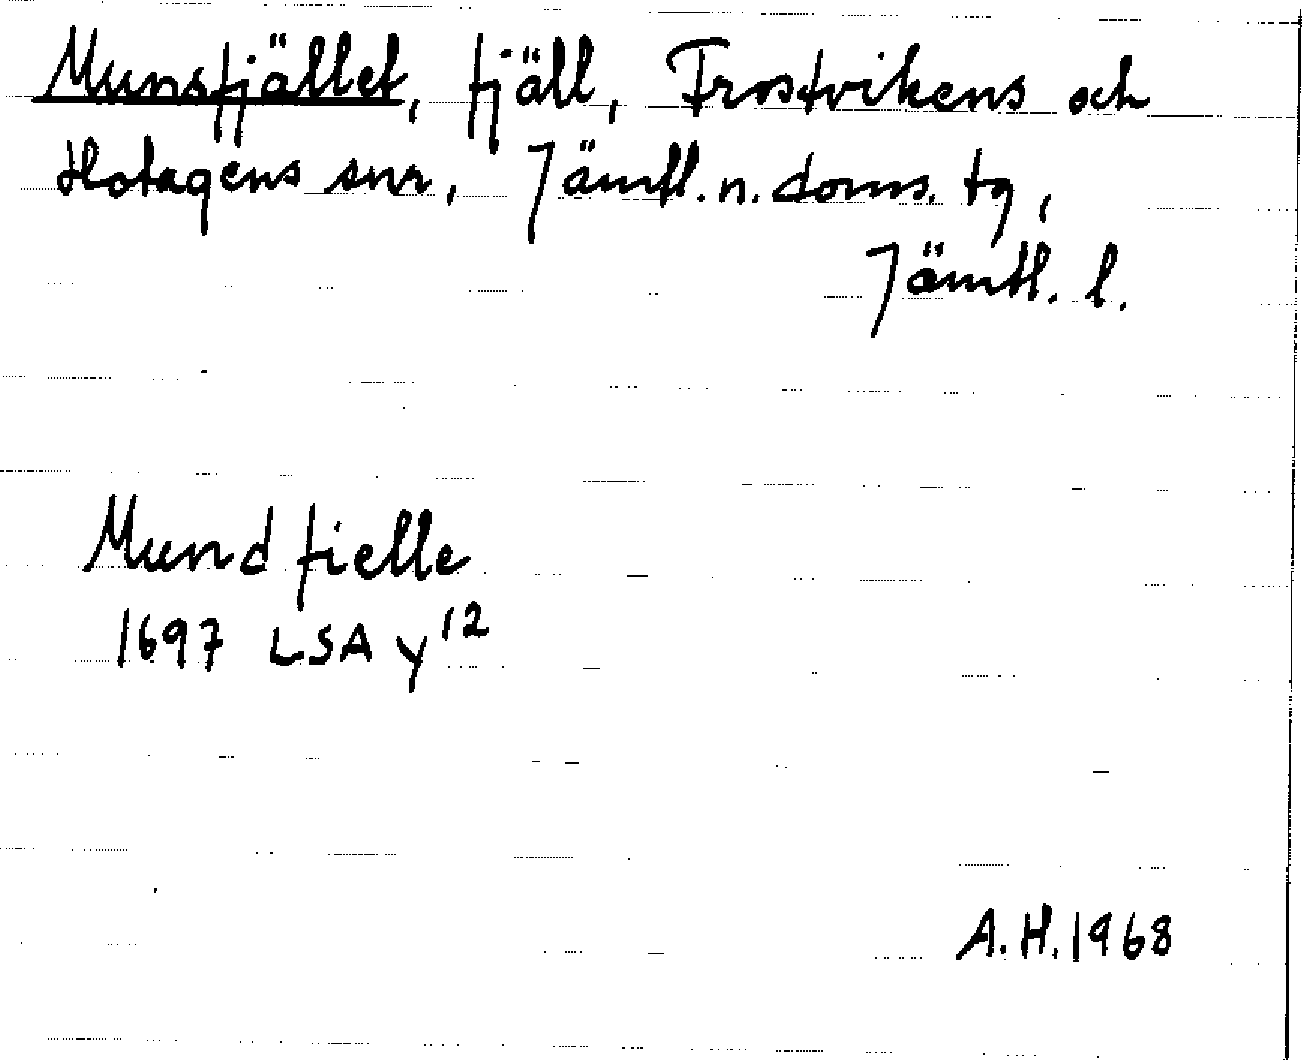 Munsfjället, fjäll, Frostvikens och
Hotagens snr, Jämtl. n. doms. tg,
Jämtl. l.
Mund fielle
1697 LSA y12
A.H. 1968